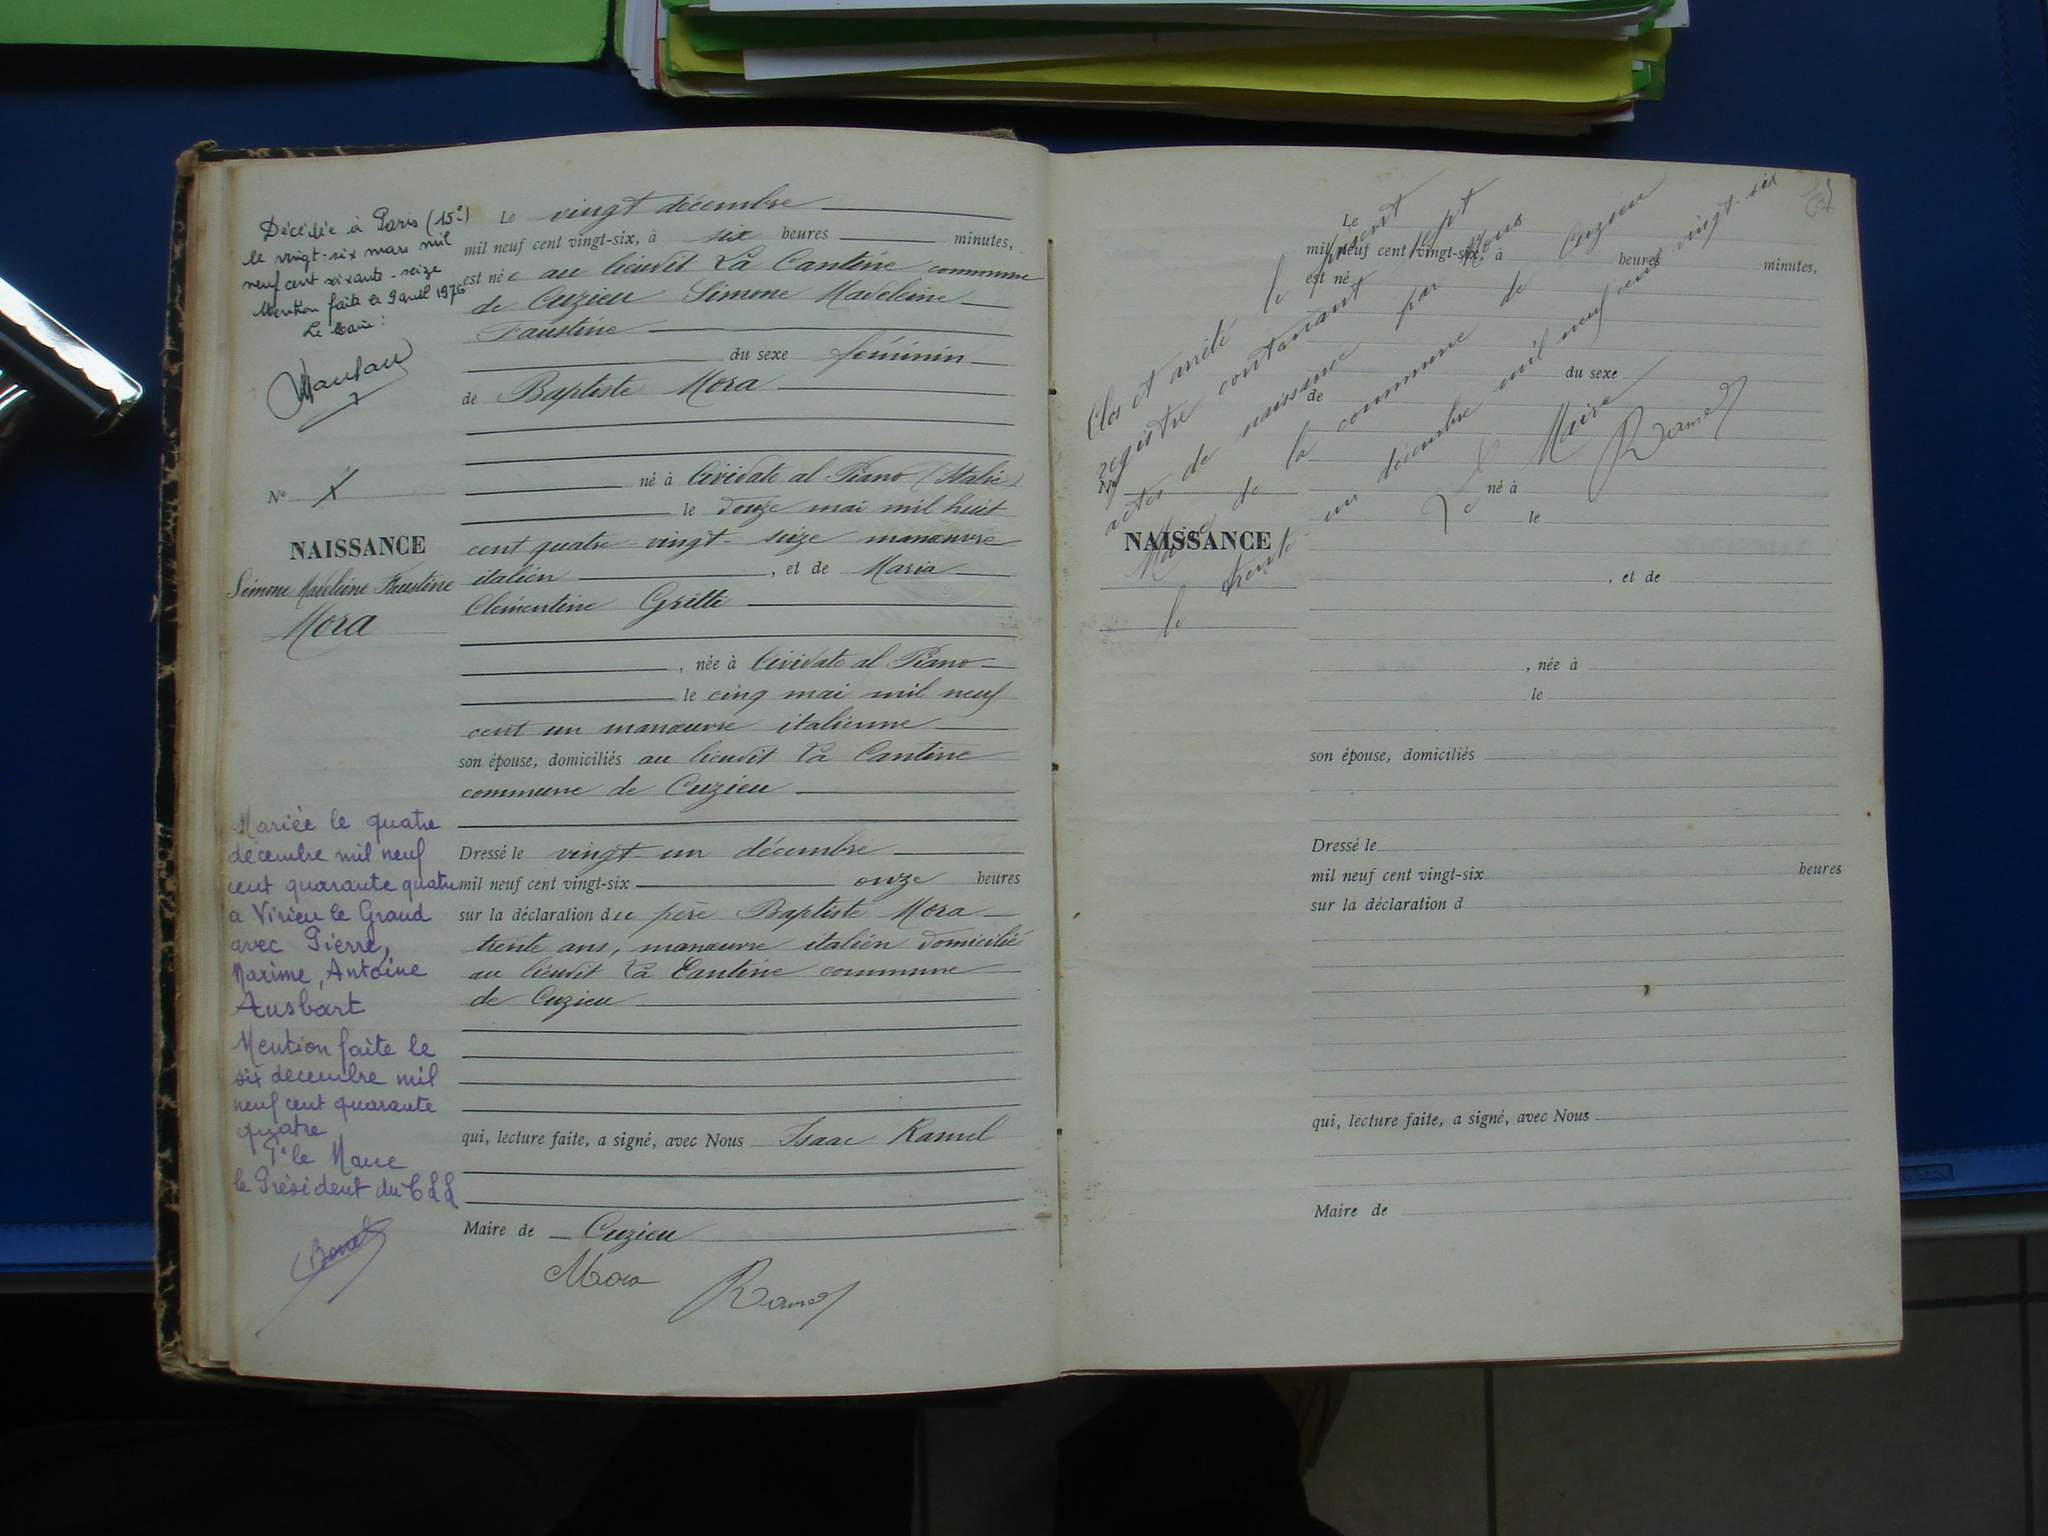 Décédée à Paris (15e)
le vingt-six mars mil
neuf cent soixante-seize
Mention faite le 9 avril 1976
Le Maire :
N° 7
NAISSANCE
Simone Madeleine Faustine
Mora
Mariée le quatre
decembre mil neuf
cent quarante quatre
a Virieu le Grand
avec Pierre,
Maxime, Antoine
Ausbart
Mention faite le
six decembre mil
neuf cent quarante
quatre
Pr le Maire
le Président du CLL
Le vingt décembre
mil neuf cent vingt-six, à six heures minutes,
est née au lieudit La Cantine commune
de Cuzieu Simone Madeleine
Faustine
du sexe féminin
de Baptiste Mora
né à Cividate al Piano (Italie)
le douze mai mil huit
cent quatre-vingt-seize manœuvre
italien , et de Maria
Clémentine Gritti
, née à Cividate al Piano
le cinq mai mil neuf
cent un manœuvre italienne
son épouse, domiciliés au lieudit La Cantine
commune de Cuzieu
Dressé le vingt-un décembre
mil neuf cent vingt-six onze heures
sur la déclaration du père Baptiste Mora
trente ans, manœuvre italien domicilié
au lieudit La Cantine commune
de Cuzieu
qui, lecture faite, a signé, avec Nous Isaac Ramel
Maire de Cuzieu
Mora
Ramel
Clos et arrêté le présent
registre contenant sept
actes de naissance par Nous
Maire de la commune de Cuzieu
le trente-un décembre mil neuf cent vingt-six
Le Maire
Ramel
Le
mil neuf cent vingt-six, à heures minutes,
est né
du sexe
de
N°
né à
le
NAISSANCE
, et de
, née à
le
son épouse, domiciliés
Dressé le
mil neuf cent vingt-six heures
sur la déclaration d
qui, lecture faite, a signé, avec Nous
Maire de